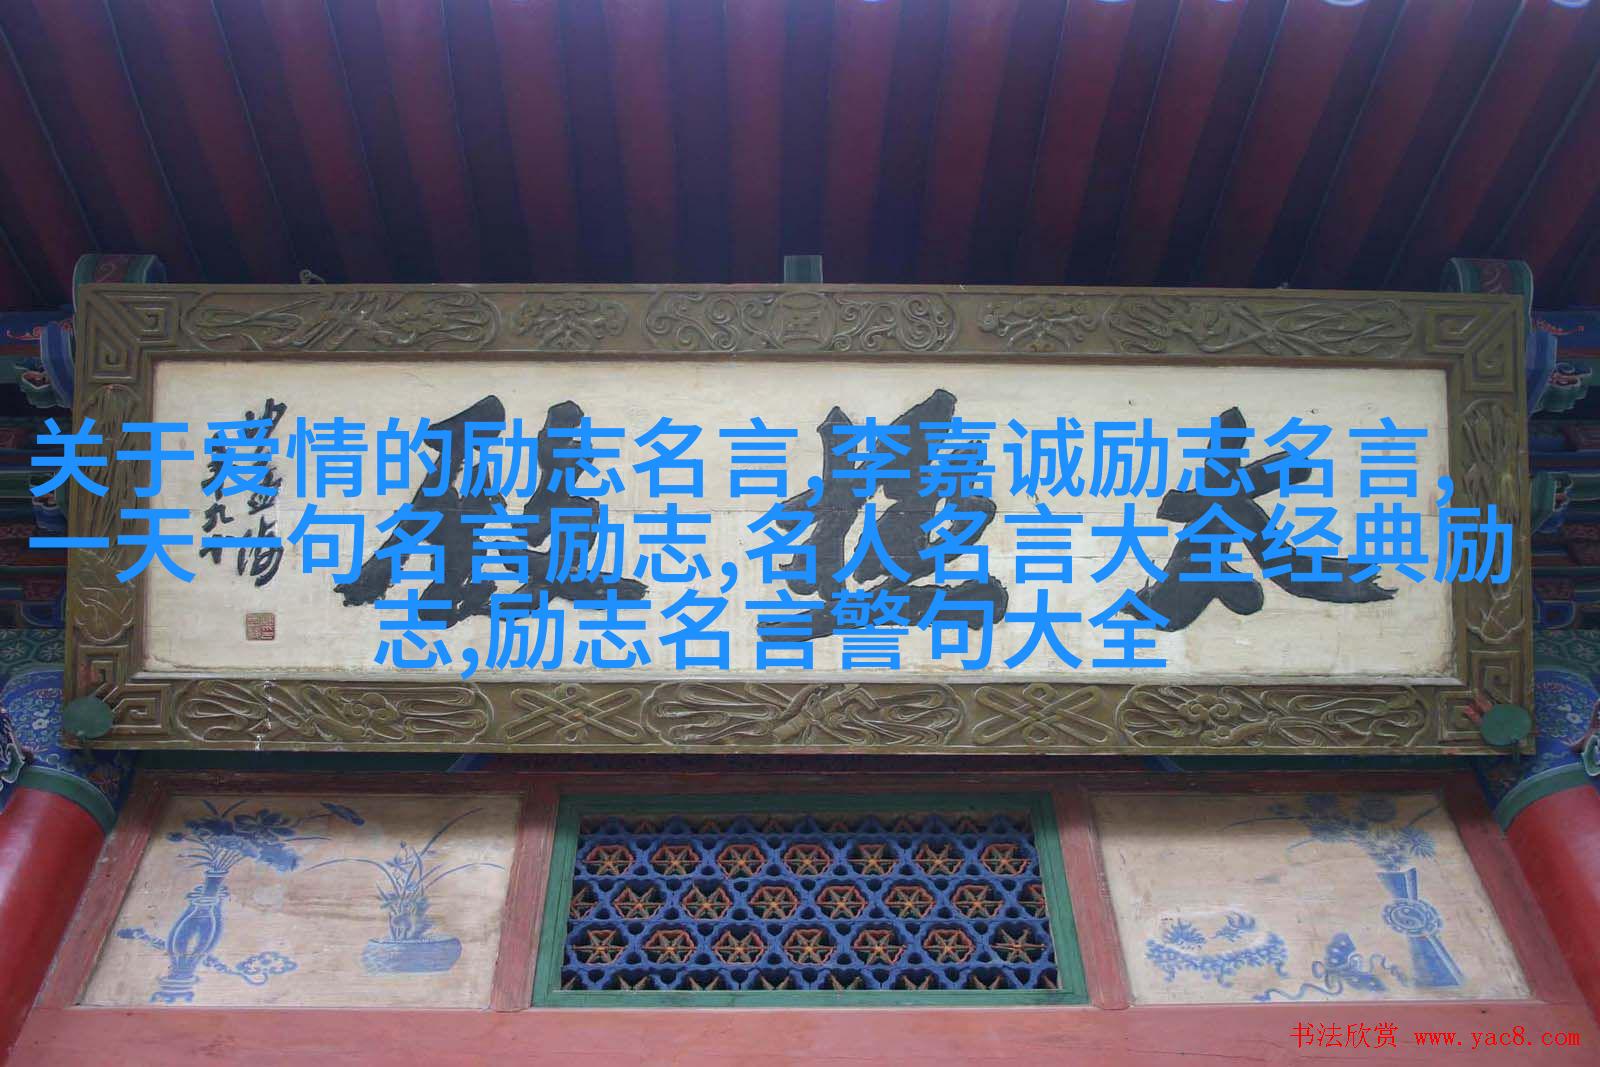 关于爱情的励志名言,李嘉诚励志名言,
一天一句名言励志,名人名言大全经典励
志,励志名言警句大全
太極殿
书法欣赏 www.yac8.com